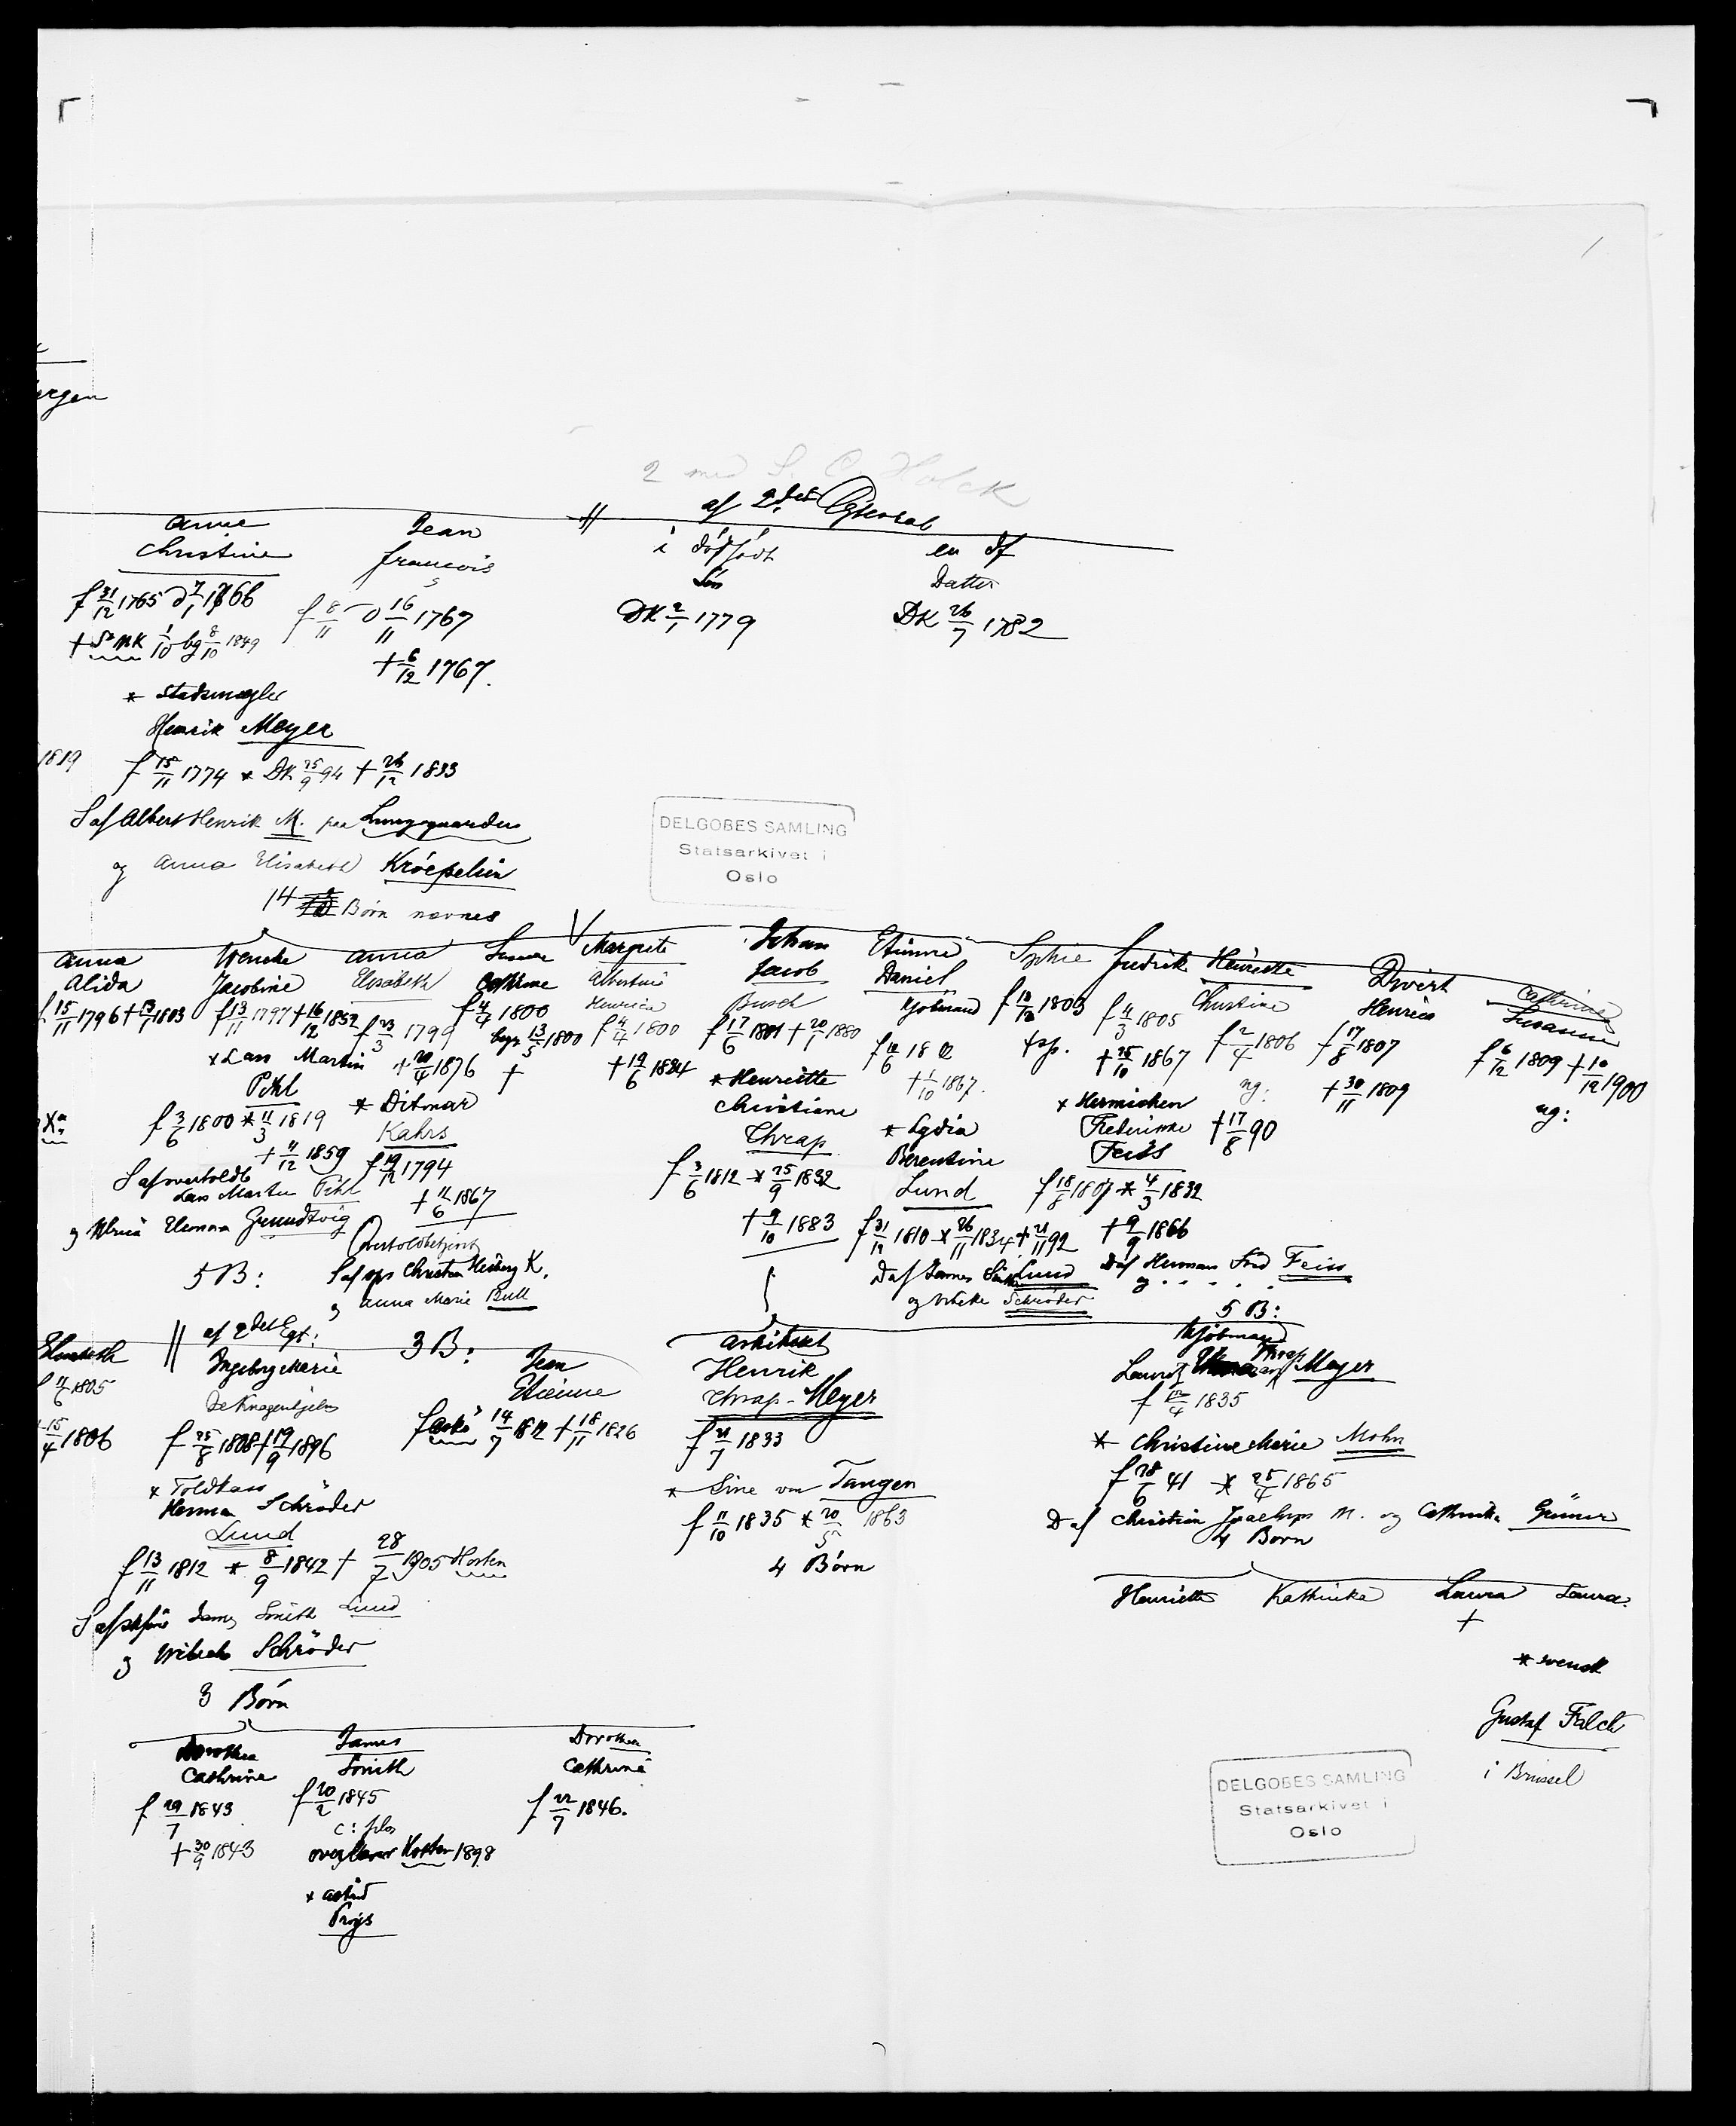 2 med S. C. Holck
af 2det Egteskab
Anne
Christine
f 31/12 1765 d 7/1 1766
+ St MK 1/10 bg 8/10 1849
* Stadsmægler
Henrik Meyer
f 15/11 1774 * DK 25/9 94 + 26/12 1833
S af Albert Henrik M. paa Lungegaarden
og Anna Elisabeth Kröepelin
14 Børn nævnes
Jean
francois
f 8/11 d 16/11 1767
+ 6/12 1767.
1 dødfødt
Søn
DK 2/1 1779
en df
Datter
DK 26/7 1782
1819
DELGOBES SAMLING
Statsarkivet i
Oslo
Anna
Alida
f 15/11 1796 + 13/1 1803
Wenche
Jacobine
f 13/11 1797 + 16/12 1852
* Lars Martin
Pihl
f 3/6 1800 * 11/3 1819
+ 11/12 1859
S af overtoldb
Lars Martin Pihl
og Elenora Grundtvig
5 B:
Anna
Elisabeth
f 23/3 1799
+ 20/4 1876
* Ditmar
Kahrs
f 19/12 1794
+ 12/6 1867
Overtoldbetjent
S af sps Christen Heiberg K.
og Anna Marie Bull
3 B:
Susane
Cathrine
f 4/4 1800
begr 13/5 1800
+
Margrete
Albertine
Henrica
f 4/4 1800
+ 19/6 1884
Johan
Jacob
Busch
f 17/6 1801 + 20/1 1880
* Henriette
Christiane
Thrap
f 3/6 1812 * 25/9 1832
+ 9/10 1883
Etienne
Daniel
Kjøbmand
f 12/6 1802
+ 1/10 1867.
* Lydia
Berentine
Lund
f 31/12 1810 * 26/11 1834 + 21/11 92
D af James Smith Lund
og Wibeke Schrøder
Sophie
f 13/12 1803
+ sp.
fredrik
f 11/3 1805
+ 25/10 1867
* Hermichen
Frederikke
Feiss
f 18/8 1807 * 4/3 1832
+ 9/9 1866
D af Herman Fred Feiss
og - - - -
5 B:
Henriette
Christine
f 2/4 1806
ug:
+ 17/8 90
Divert
Henrich
f 17/8 1807
+ 30/11 1809
Cathrine
Susanne
f 6/12 1809 + 10/12 1900
ug:
Elisabeth
f 11/6 1805
+ 15/4 1806
af 2det Egt:
Ingeborg Marie
f 25/8 1808 + 19/9 1896
* Toldkass
Herman Schrøder
Lund
f 13/11 1812 * 8/9 1842 + 28/7 1905 Horten
S af James Smith Lund
og Wibeke Schrøder
3 Børn
Jean
Etienne
f Askö 14/7 1812 + 18/11 1826
arkitekt
Henrik
Thrap-Meyer
f 21/7 1833
* Sine von Tangen
f 11/10 1835 * 20/5 1863
4 Børn
Kjøbmand
Lauritz Thrap Meyer
f 12/4 1835
* Christine Marie Mohn
f 28/6 41 * 25/4 1865
D af Christian M. og Cathinka Grüner
4 Børn
Henriette
Kathinka
Laura
+
Laura.
* svensk
Gustaf Falck
i Brüssel
Dorothea
Cathrine
f 29/7 1843
+ 30/9 1843
James
Smith
f 20/2 1845
c: filos
overlærer Horten 1898
* Astrid
Prøys
Dorothea
Cathrine
f 22/7 1846.
DELGOBES SAMLING
Statsarkivet i
Oslo